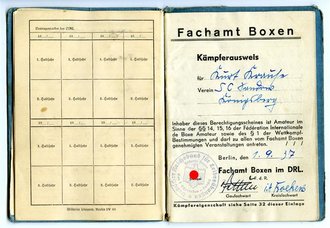 1. Hebjahr 1. Hebjahr 1. Hebjahr 1. Hebjahr
2. Hebjahr 2. Hebjahr 2. Hebjahr 2. Hebjahr
3. Hebjahr 3. Hebjahr 3. Hebjahr 3. Hebjahr
4. Hebjahr 4. Hebjahr 4. Hebjahr 4. Hebjahr
Fachamt Boxen
Kämpferausweis
für Kurt Krause
Verein S.C. Sandow
Königsberg
Inhaber dieses Berechtigungsscheines ist Amateur im
Sinne der §§ 14, 15, 16 der Fédération Internationale
de Boxe Amateur sowie des § 1 der Wettkampf-
Bestimmungen und darf zu allen vom Fachamt Boxen
genehmigten Veranstaltungen antreten.
Berlin, den 1. 9. 37
Fachamt Boxen im DRL.
Gaufachwart Kreisfachwart
Kämpfereigenschaft siehe Seite 32 dieser Einlage